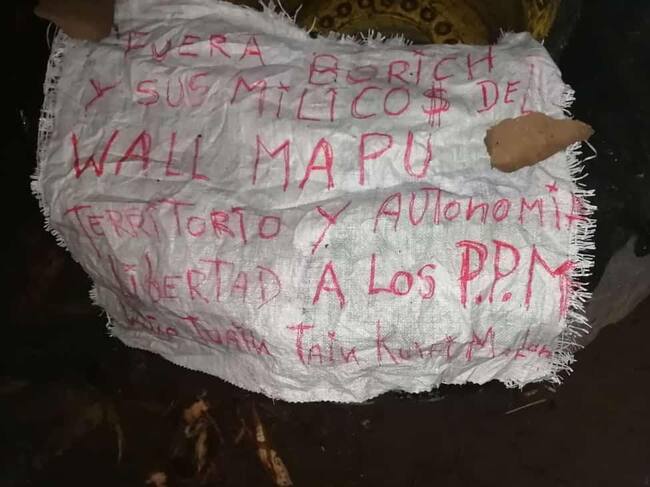 FUERA BORICH
Y SUS MILICO$ DEL
WALL MAPU
TERRITORIO Y AUTONOMIA
LIBERTAD A LOS P.P.M
Tain